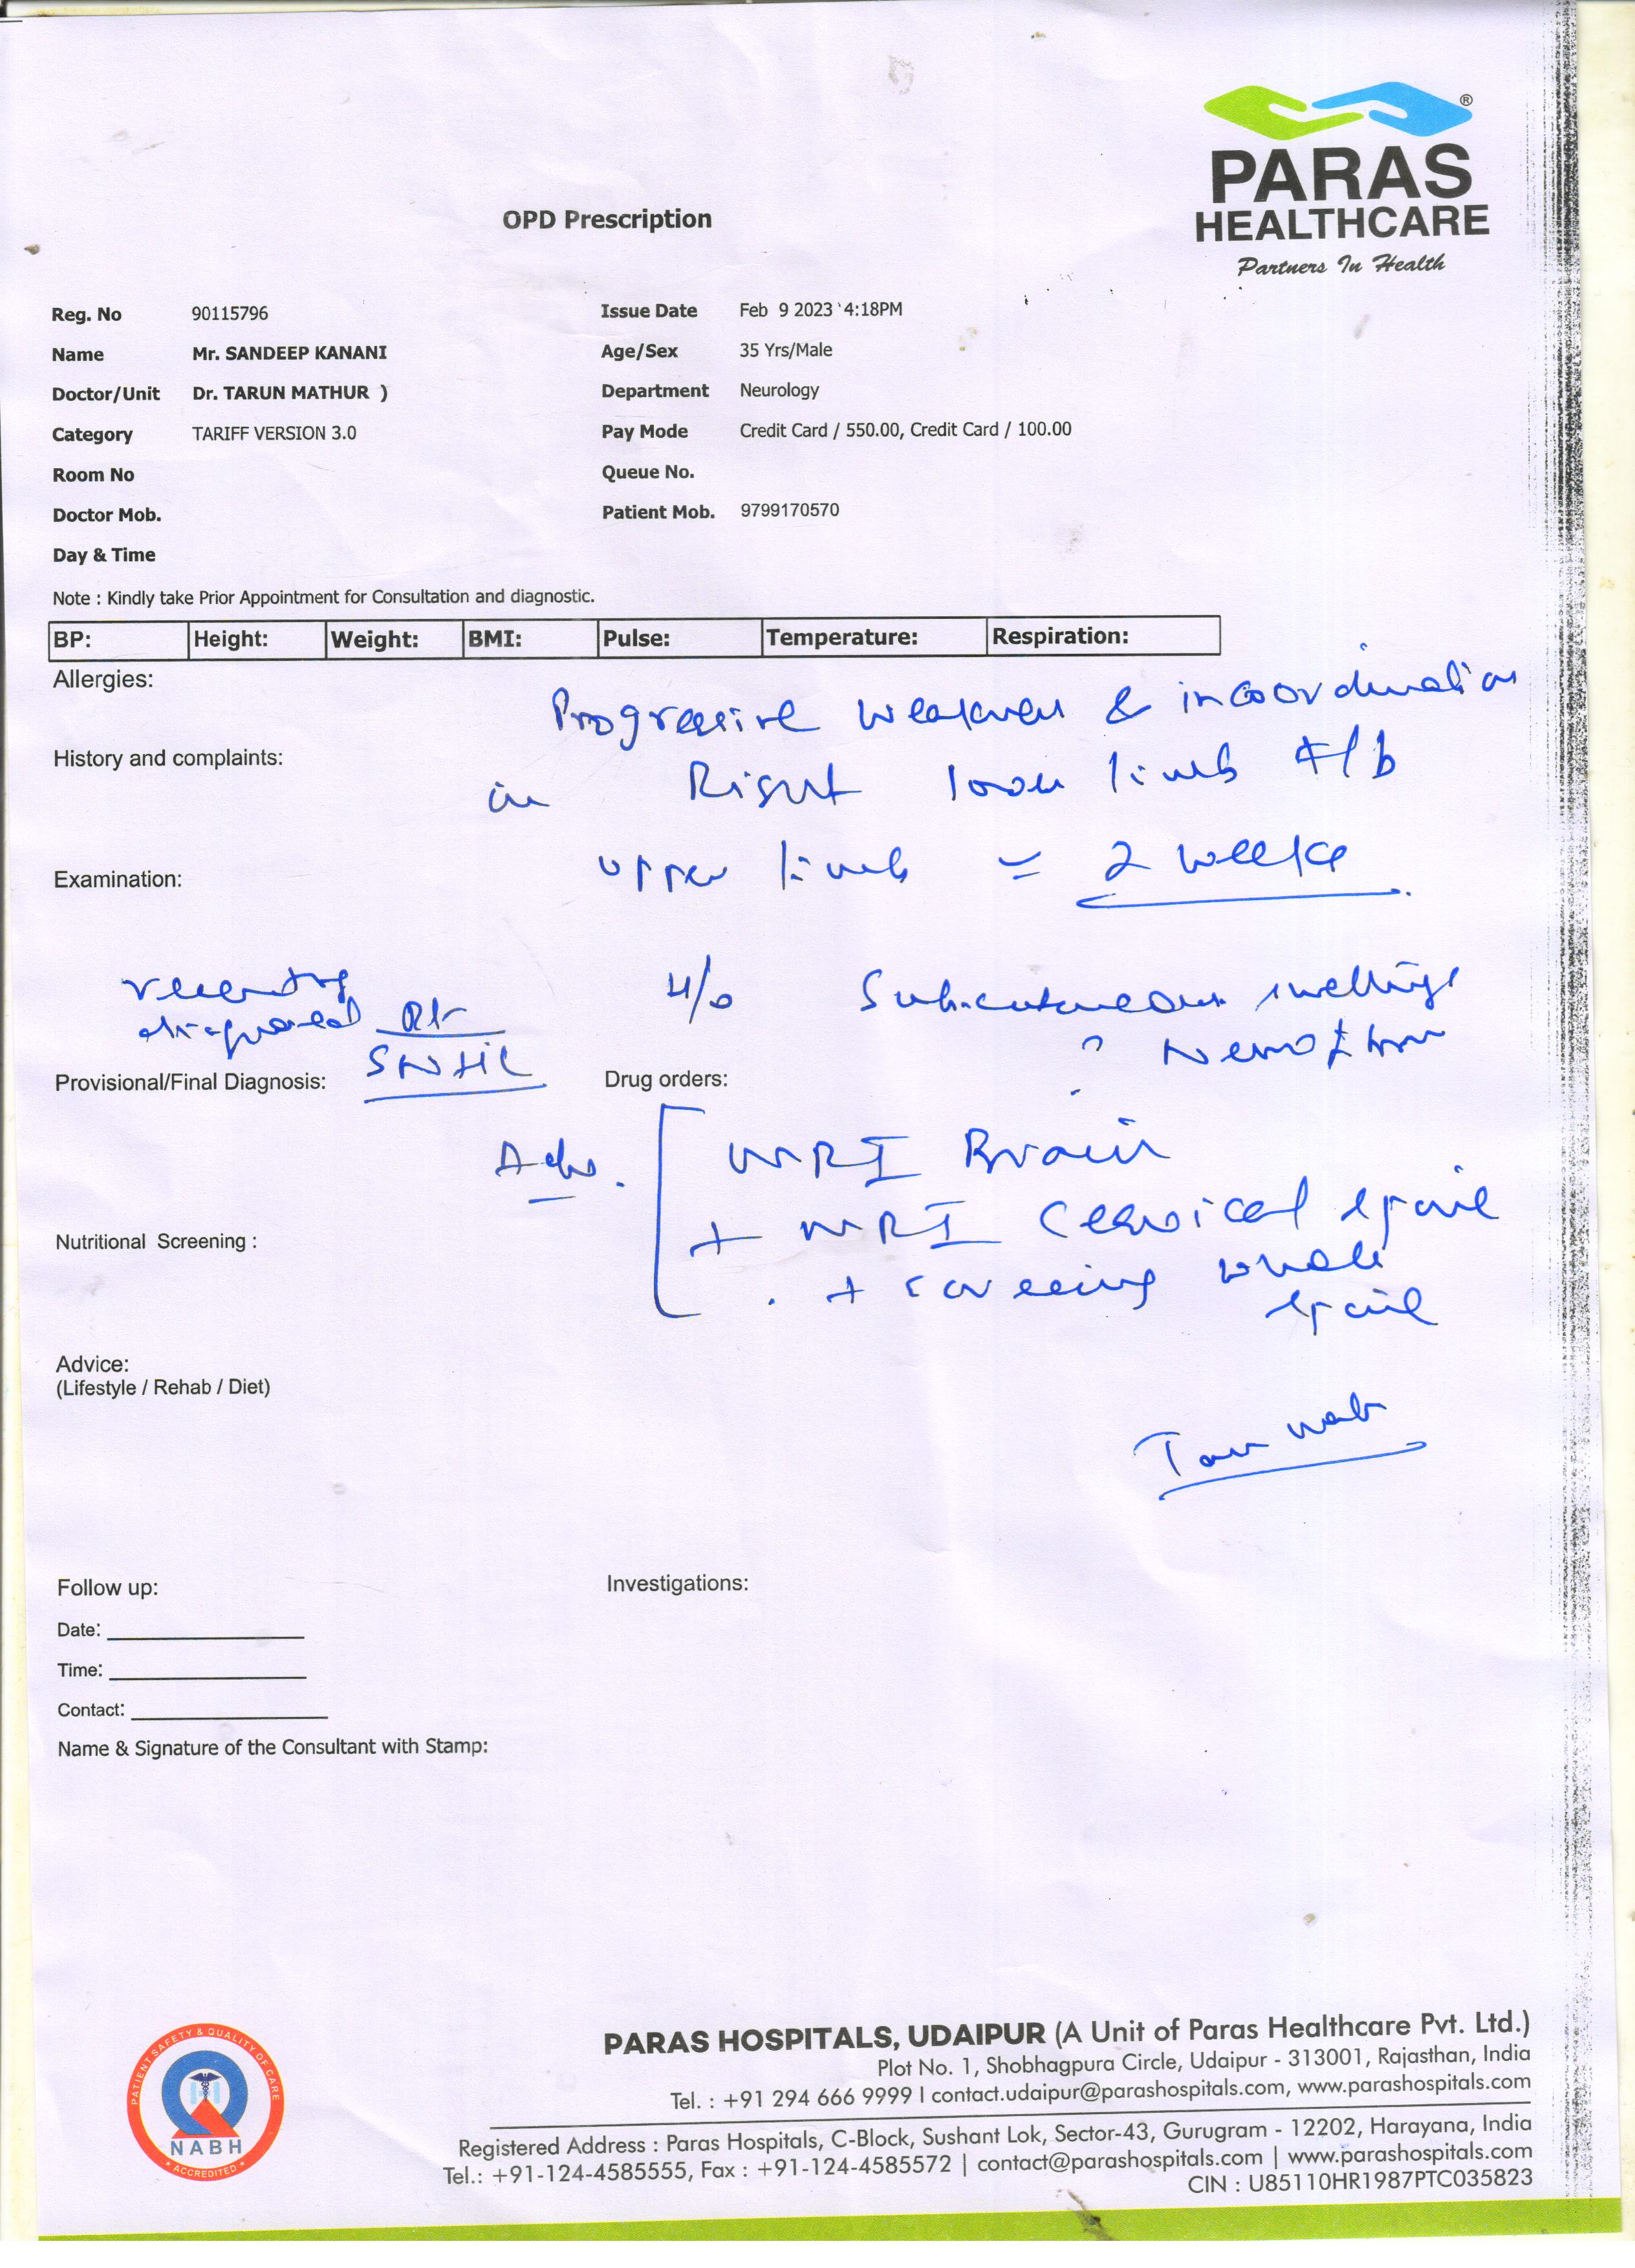 PARAS
HEALTHCARE
Partners In Health
®
OPD Prescription
Reg. No 90115796 Issue Date Feb 9 2023 4:18PM
Name Mr. SANDEEP KANANI Age/Sex 35 Yrs/Male
Doctor/Unit Dr. TARUN MATHUR ) Department Neurology
Category TARIFF VERSION 3.0 Pay Mode Credit Card / 550.00, Credit Card / 100.00
Room No Queue No.
Doctor Mob. Patient Mob. 9799170570
Day & Time
Note : Kindly take Prior Appointment for Consultation and diagnostic.
BP: Height: Weight: BMI: Pulse: Temperature: Respiration:
Allergies:
Progressive weakness & incoordination
History and complaints:
in Right lower limb f/b
Examination:
upper limb = 2 weeks
recently
diagnosed Rt
SNHL
H/o Subcutaneous swellings
?
Provisional/Final Diagnosis: Drug orders:
Adv. MRI Brain
+ MRI Cervical spine
+ screening whole
spine
Nutritional Screening :
Advice:
(Lifestyle / Rehab / Diet)
Follow up: Investigations:
Date:
Time:
Contact:
Name & Signature of the Consultant with Stamp:
PATIENT SAFETY & QUALITY OF CARE
NABH
ACCREDITED
PARAS HOSPITALS, UDAIPUR (A Unit of Paras Healthcare Pvt. Ltd.)
Plot No. 1, Shobhagpura Circle, Udaipur - 313001, Rajasthan, India
Tel. : +91 294 666 9999 I contact.udaipur@parashospitals.com, www.parashospitals.com
Registered Address : Paras Hospitals, C-Block, Sushant Lok, Sector-43, Gurugram - 12202, Harayana, India
Tel.: +91-124-4585555, Fax : +91-124-4585572 | contact@parashospitals.com | www.parashospitals.com
CIN : U85110HR1987PTC035823